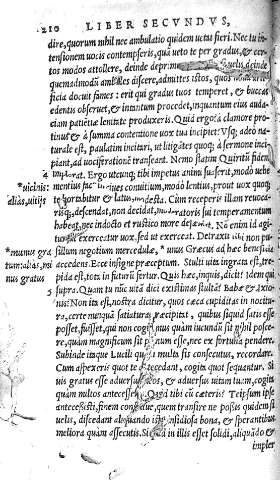 210 LIBER SECVNDVS,
dire, quorum nihil nec ambulatio quidem uetat fieri. Nec tu in-
tensionem uocis contempseris, quã ueto te per gradus, & cer-
tos modos attollere, deinde deprimere.
quemadmodũ discere, admittes istos, quos noua arti-
ficia docuit fames: erit qui gradus tuos temperet, & buccas
edentis obseruet, & intantum procedet, inquantum eius auda-
ciam patiẽtia et lentitudine produxeris. Quid ergo? à clamore pro-
tinus & à summa contentione uox tua incipiet? Vsq; adeo na-
turale est, paulatim incitari, ut litigãtes quoq; à sermone inci-
piant, ad uociferationẽ transeant. Nemo statim Quiritũ fidem
implorat. Ergo utcunq; tibi impetus animi suaserit, modo uehe-
*uicinis: mentius conuitium, modò lentius, prout uox quoq;
aliàs, uitijs te hortabitur & latus, modesta. Cum receperis illam reuoca-
risq;, descendat, non decidat, mediatoris sui temperamentum
habeat, nec indocto et rustico more No enim id agi-
mus exerceatur uox, sed ut exerceat. Detraxi tibi non pu-
*munus gra sillum negotium mercedula, * unus Græcus ad hæc beneficia
tum: aliàs, mi accedens. Ecce insigne præceptum. Stulti uita ingrata est, tre-
nus gratus pida est, tota in futurũ fertur. Quis hæc, inquis, dicit? Idem qui
5 supra. Quam tu nũc uitã dici existimas stultã? Babæ & Ixio-
nis? Non ita est, nostra dicitur, quos cæca cupiditas in nocitu-
ra, certe nunquã satiatura præcipitat, quibus siquid satis esse
posset, fuisset, qui non cogitamus quàm iucundũ sit nihil posce-
re, quàm magnificum sit plenum esse, nec ex fortuna pendere.
Subinde itaque Lucili quàm multa sis consecutus, recordare.
Cum aspexeris quot te antecedant, cogita quot sequantur. Si
uis gratus esse aduersus deos, & aduersus uitam tuam, cogita
quàm multos antecesseris. Quid tibi cũ cæteris? Teipsum ipse
antecessisti, finem constitue, quem transire ne possis quidem si
uelis, discedant aliquando ista insidiosa bona, & sperantibus
meliora quàm assecutis. Si quid in illis esset solidi, aliquãdo &
impler